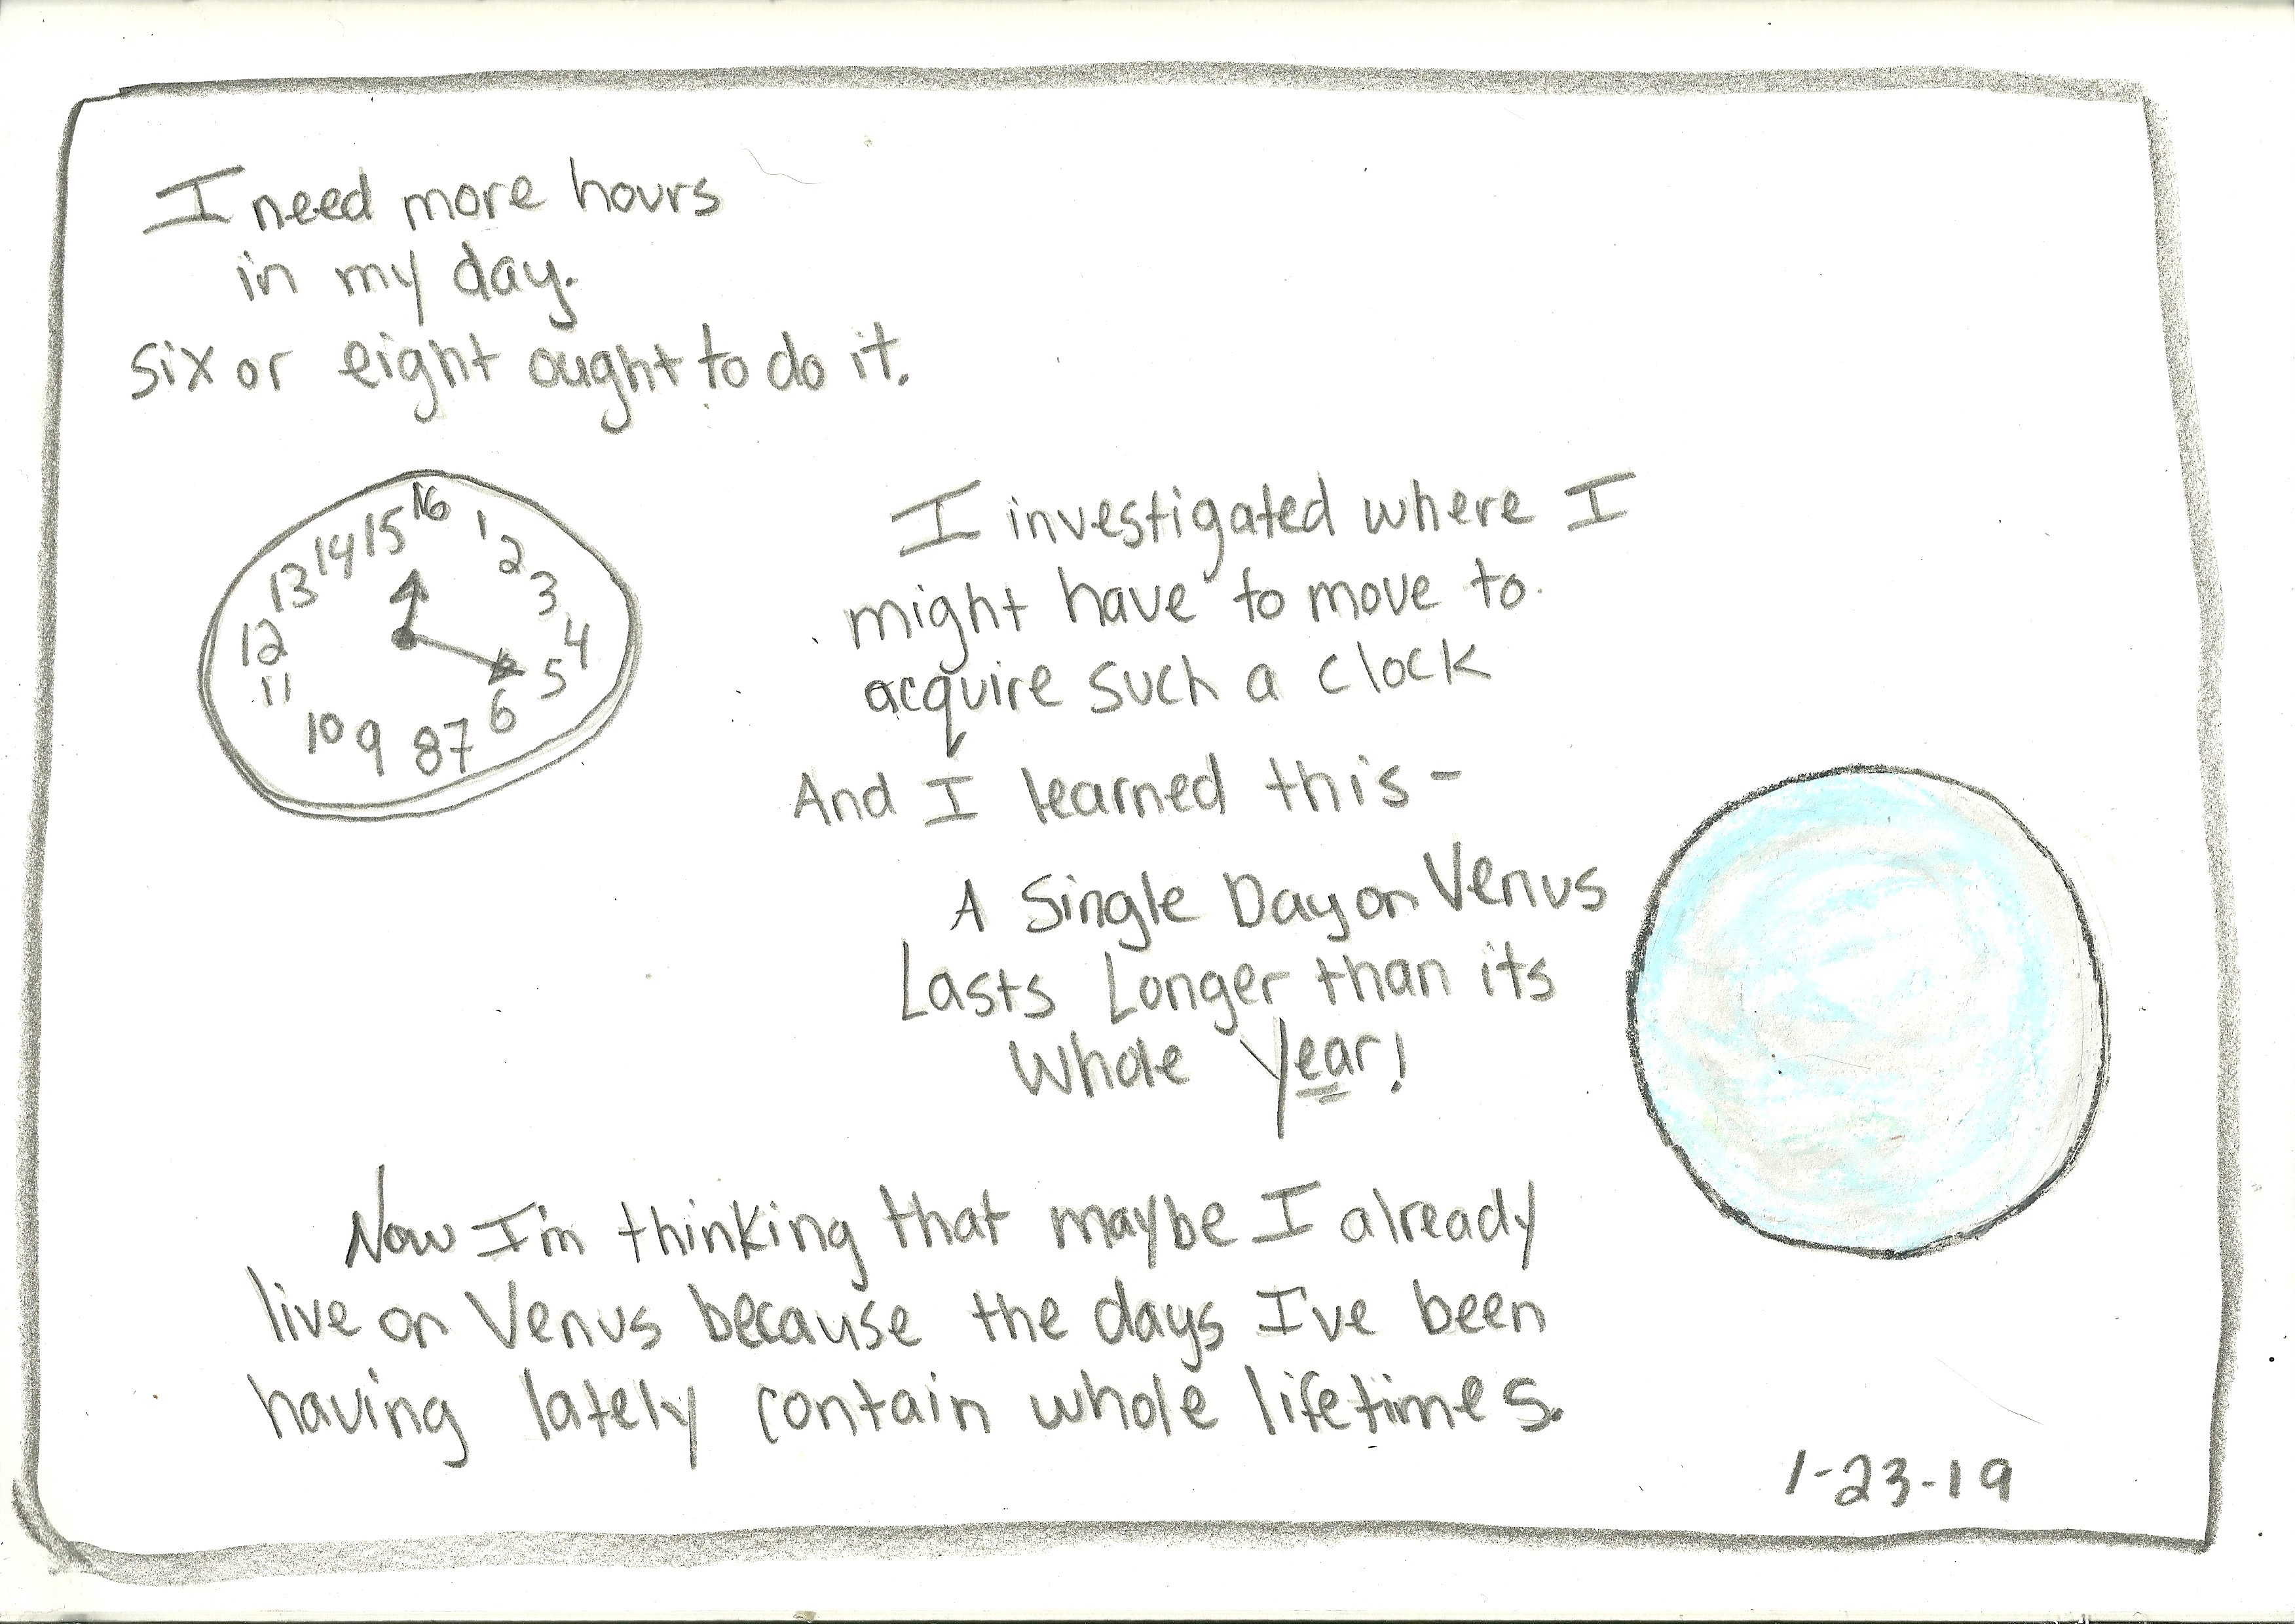 I need more hours
in my day.
six or eight ought to do it.
16
1
2
3
4
5
6
7
8
9
10
11
12
13
14
15
I investigated where I
might have to move to
acquire such a clock
And I learned this-
A Single Day on Venus
Lasts Longer than its
Whole Year!
Now I'm thinking that maybe I already
live on Venus because the days I've been
having lately contain whole lifetimes.
1-23-19